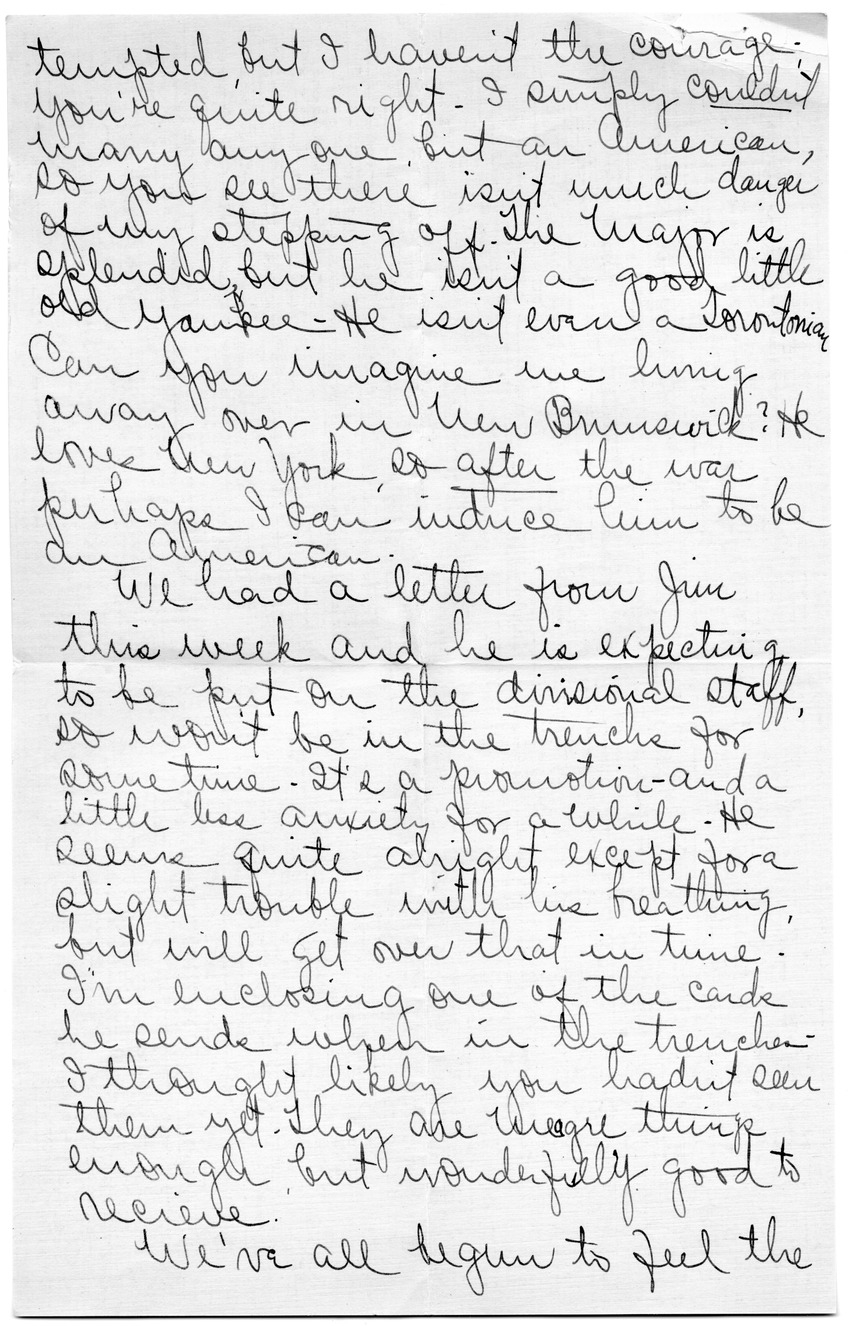 tempted, but I haven't the courage.
You're quite right - I simply couldn't
marry any one, but an American,
so you see there isn't much danger
of my stepping off. The Major is
splendid, but he isn't a good little
old Yankee - He isn't even a Torontonian
Can you imagine me living
away over in New Brunswick? He
loves New York, so after the war
perhaps I can induce him to be
an American.
We had a letter from Jim
this week and he is expecting
to be put on the divisional staff,
so won't be in the trenchs for
sometime - It's a promotion - and a
little less anxiety for a while - He
seems quite alright, except for a
slight trouble with his breathing,
but will get over that in time -
I'm enclosing one of the cards
he sends when in the trenches -
I thought likely you hadn't seen
them yet - They are meagre things
enough, but wonderfully good to
recieve.
We've all begun to feel the